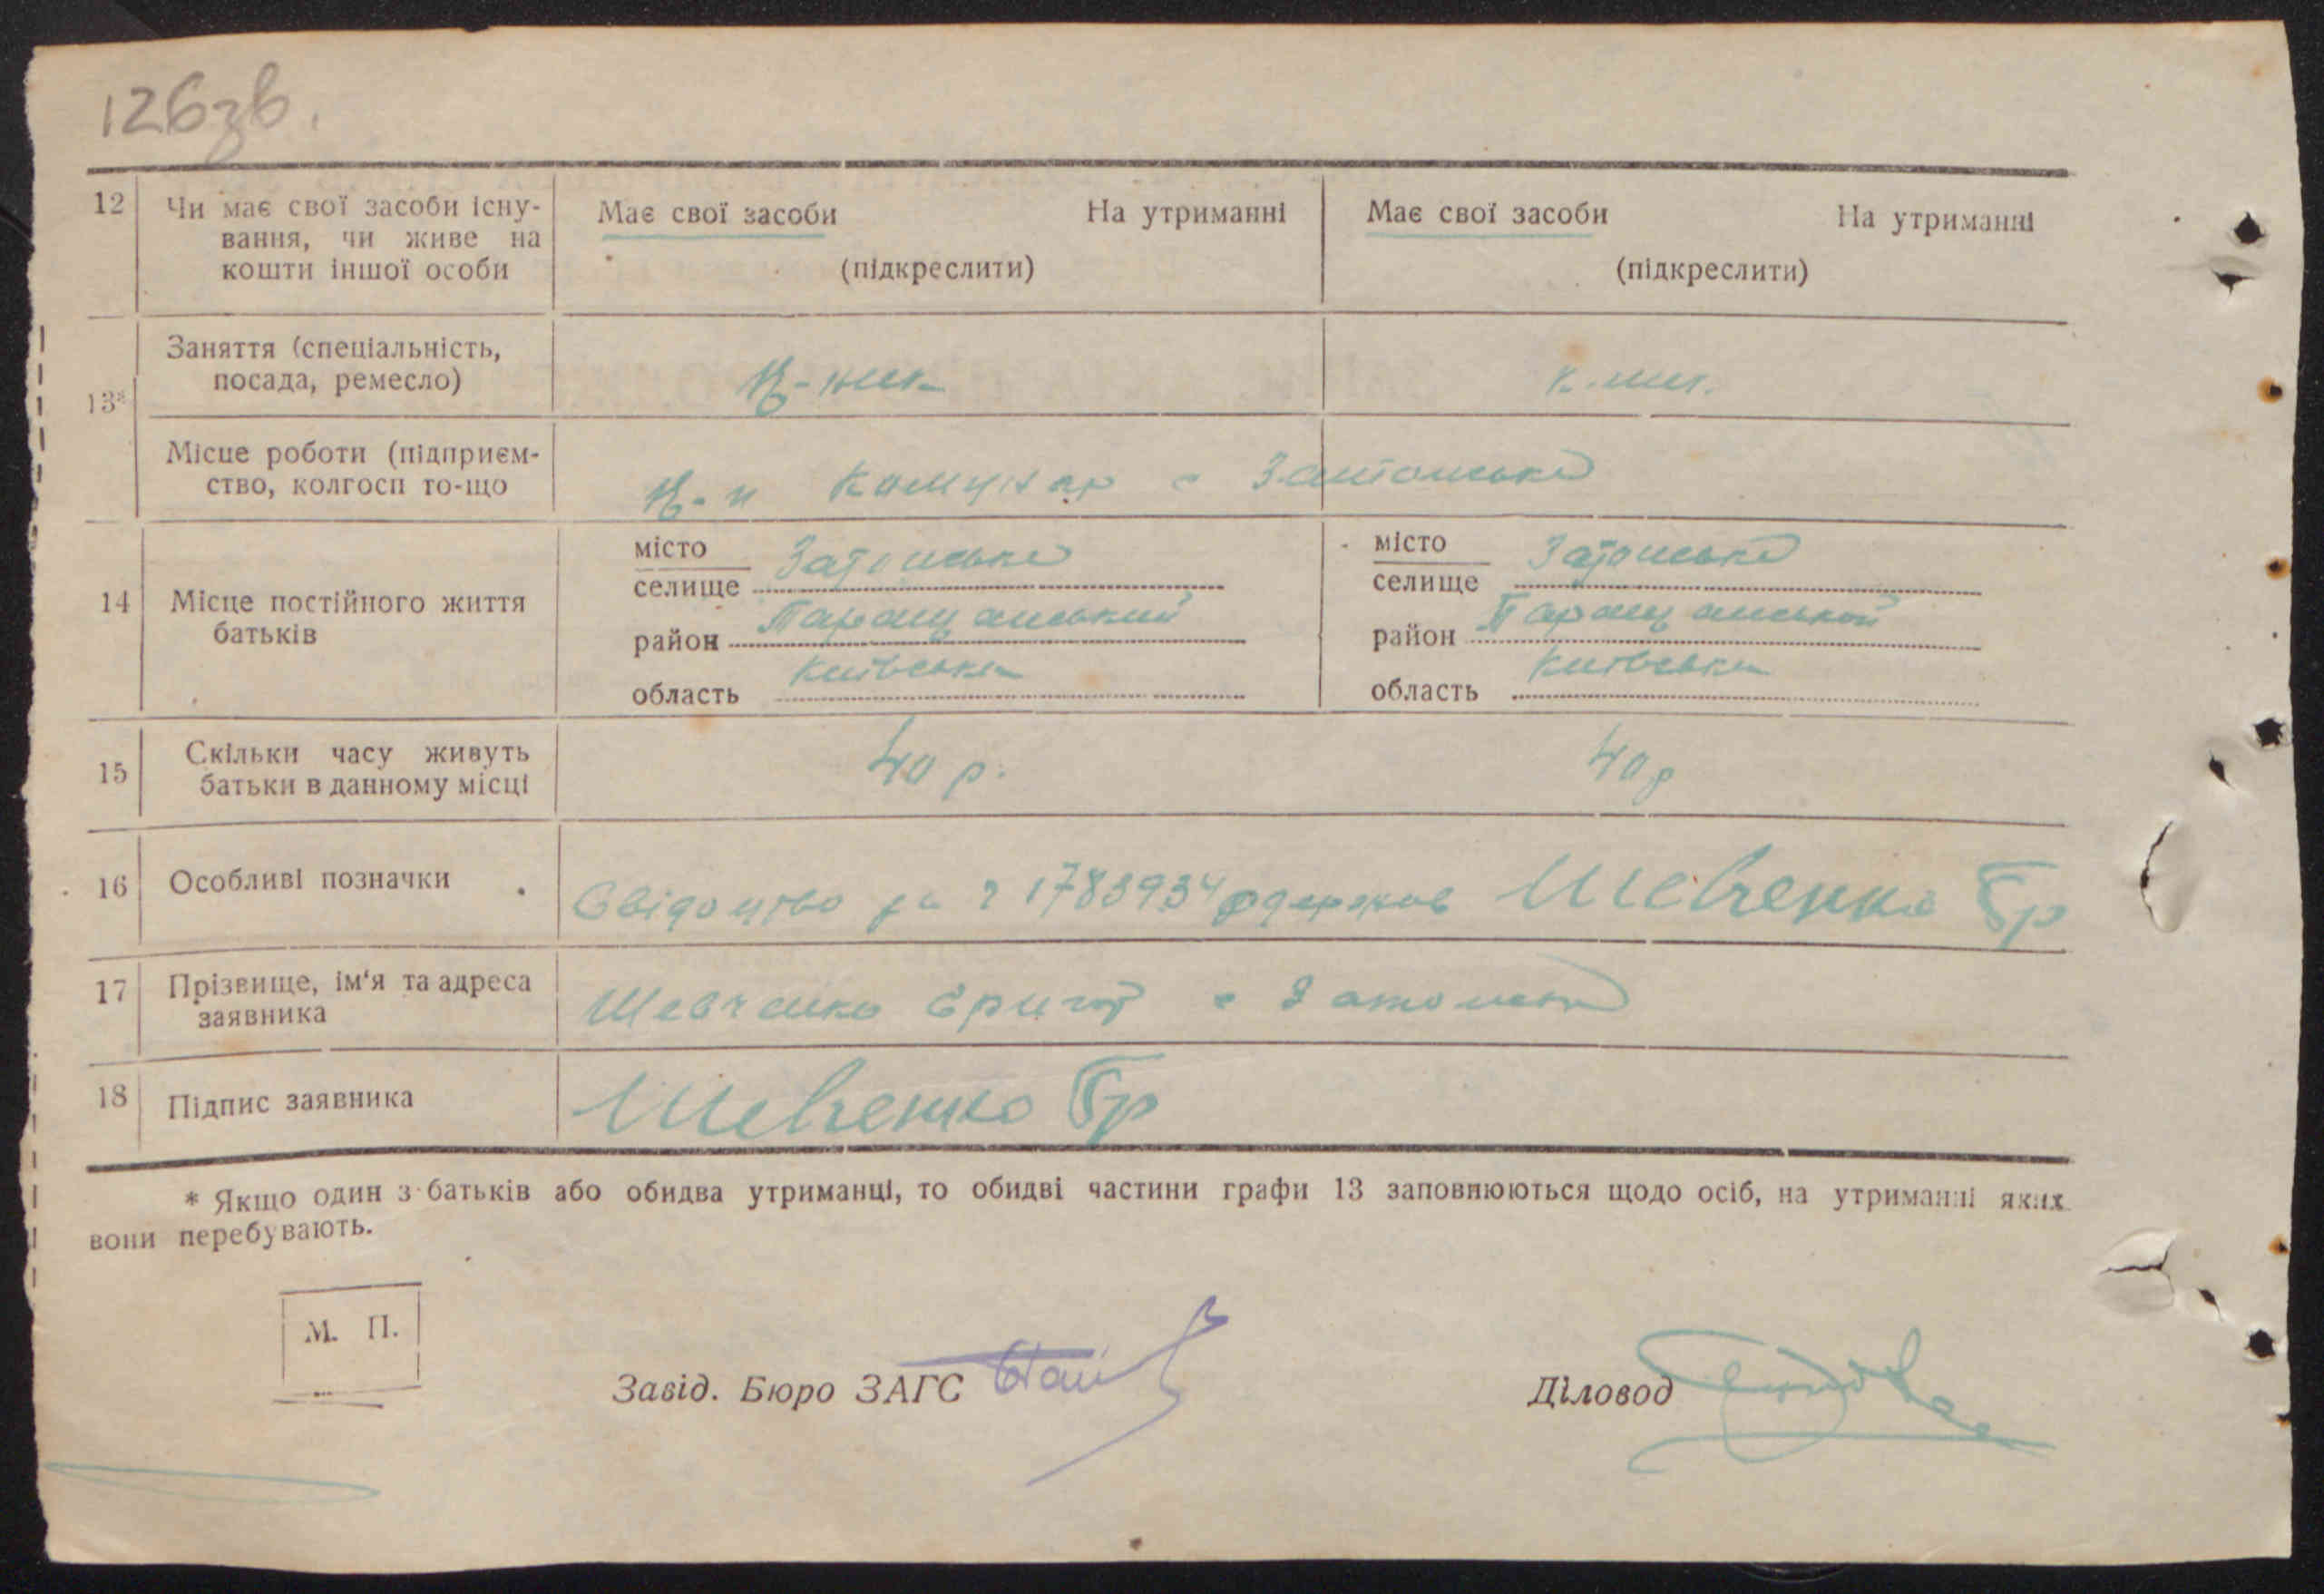 126зв.
12 Чи має свої засоби існу- Має свої засоби На утриманні Має свої засоби На утриманні
вання, чи живе на
кошти іншої особи (підкреслити) (підкреслити)
Заняття (спеціальність,
посада, ремесло) к-ник к-ник.
13*
Місце роботи (підприєм-
ство, колгосп то-що к-п Комунар с
місто місто
селище селище
14 Місце постійного життя
батьків
район Таращанський район Таращанський
область Київська область Київська
15 Скільки часу живуть
батьки в данному місці 40 р. 40 р
16 Особливі позначки Свідоцтво за 1783934 одержав Шевченко Гр
17 Прізвище, ім'я та адреса
заявника Шевченко с
18 Підпис заявника Шевченко Гр
* Якщо один з батьків або обидва утриманці, то обидві частини графи 13 заповнюються щодо осіб, на утриманні яких
вони перебувають.
М. П.
Завід. Бюро ЗАГС Діловод